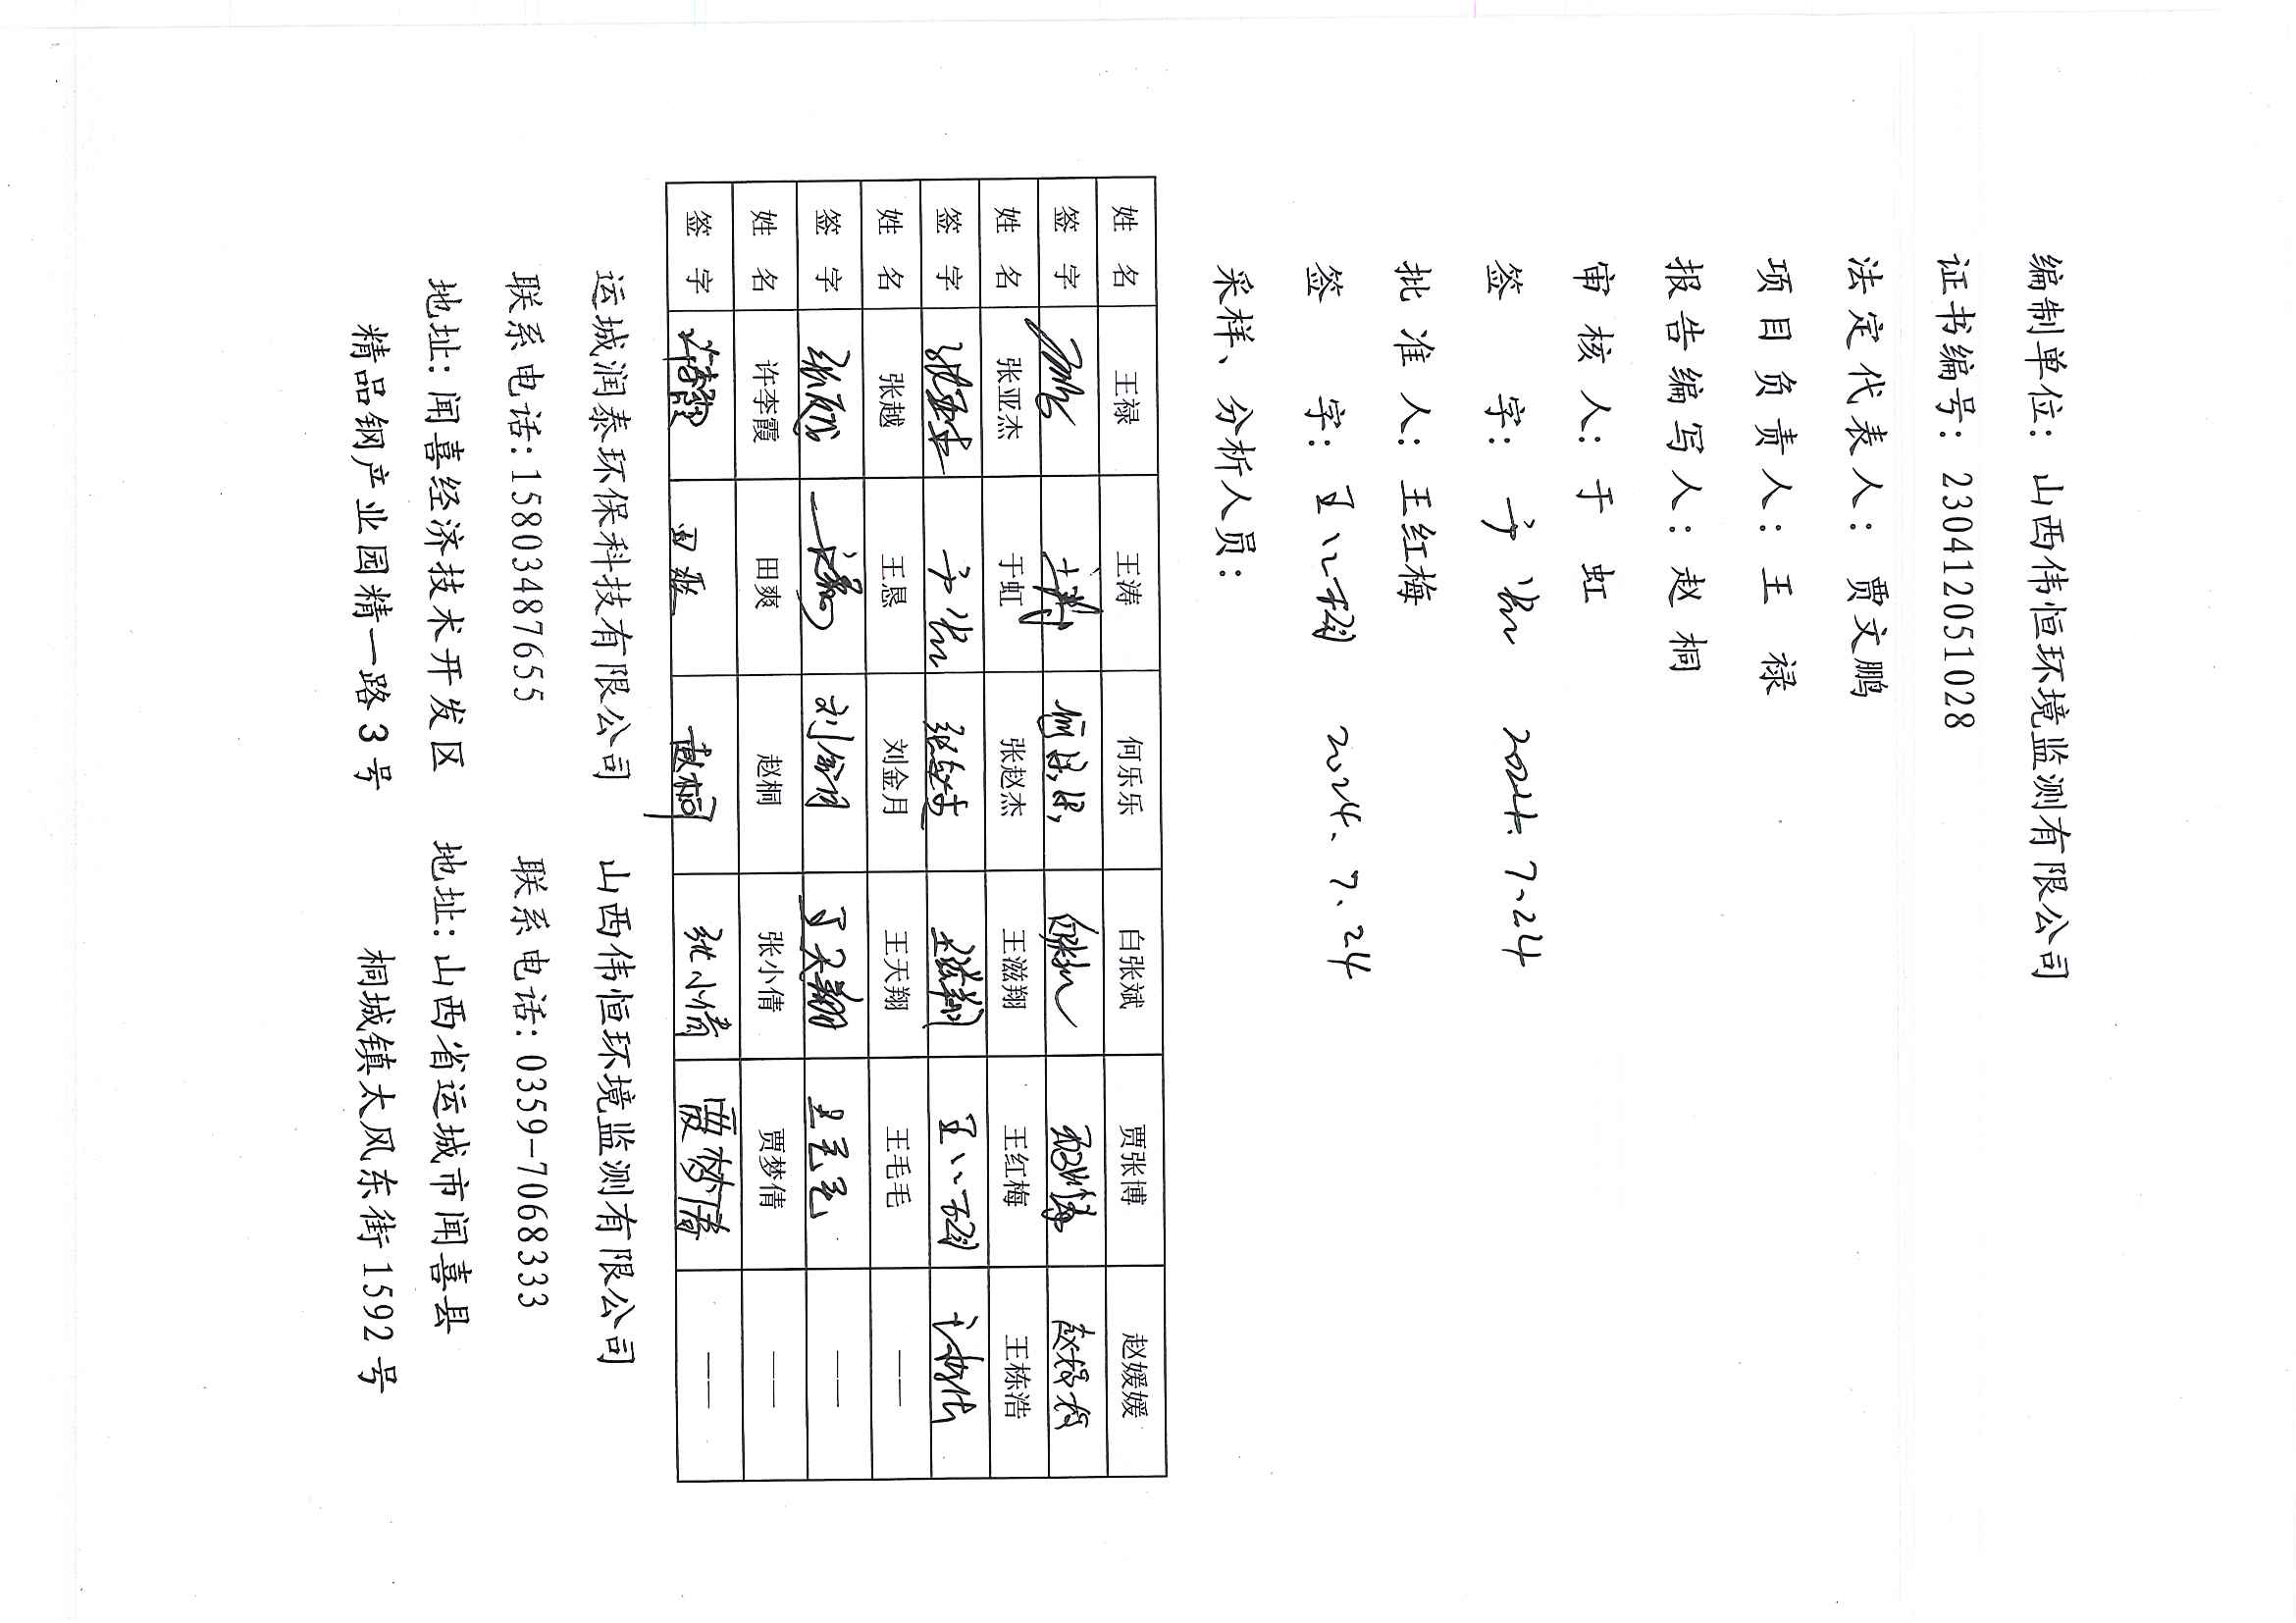 编制单位：山西伟恒环境监测有限公司
证书编号：230412051028
法定代表人：贾文鹏
项目负责人：王 禄
报告编写人：赵 桐
审 核 人：于 虹
签 字：于虹 2024.7.24
批 准 人：王红梅
签 字：王红梅 2024.7.24
采样、分析人员：
姓 名 王禄 王涛 何乐乐 白张斌 贾张博 赵媛媛
签 字 何乐乐
姓 名 张亚杰 于虹 张赵杰 王滋翔 王红梅 王栋浩
签 字 张亚杰 于虹 张赵杰 王滋翔 王红梅
姓 名 张越 王恳 刘金月 王天翔 王毛毛 ——
签 字 张越 刘金月 王天翔 王毛毛 ——
姓 名 许李霞 田爽 赵桐 张小倩 贾梦倩 ——
签 字 许李霞 田爽 赵桐 张小倩 贾梦倩 ——
运城润泰环保科技有限公司 山西伟恒环境监测有限公司
联系电话：15803487655 联系电话：0359-7068333
地址：闻喜经济技术开发区 地址：山西省运城市闻喜县
精品钢产业园精一路3号 桐城镇太风东街1592号